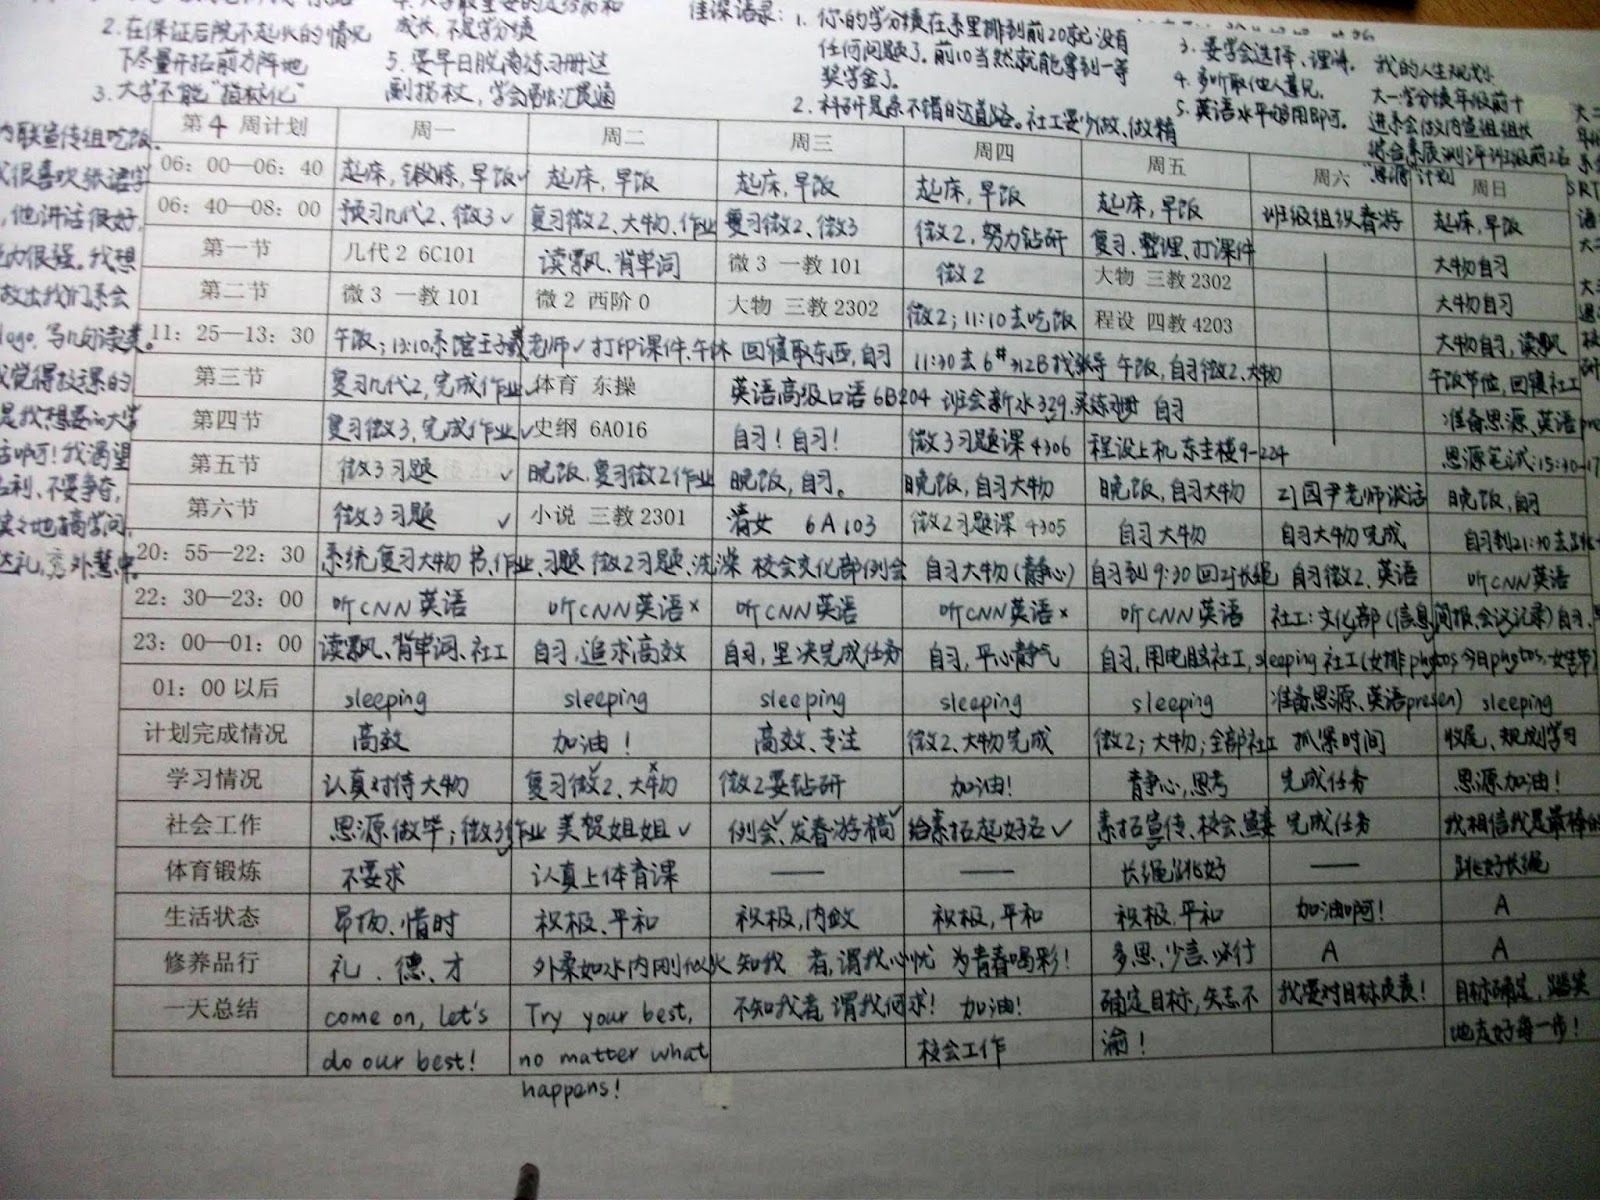 2.在保证后院不起火的情况
下尽量开拓前方阵地
3.大学不能"指标化"
成长,不是学分绩
5.要早日脱离练习册这
副拐杖,学会融汇贯通
佳深语录:1.你的学分绩在系里排到前20就没有
任何问题了。前10当然就能拿到一等
奖学金了。
2.科研是条不错的道路。社工要少做、做精
3.要学会选择、理清。
4.多听取他人意见。
5.英语水平够用即可。
我的人生规划
大一:学分绩年级前十
进系会做内宣组组长
综合素质测评班级前2名
"思源"计划
内联宣传组吃饭。
我很喜欢张语学
,他讲话很好,
能力很强。我想
做出我们系会
logo,
我觉得
是我想要的大学
啊!我渴望
名利、不要争夺,
地搞学问,
达礼,秀外慧中。
第4周计划 周一 周二 周三 周四 周五 周六 周日
06:00—06:40 起床,锻炼,早饭✓ 起床,早饭 起床,早饭 起床,早饭 起床,早饭 班级组织春游 起床,早饭
06:40—08:00 预习几代2、微3✓ 复习微2、大物、作业 复习微2、微3 微2,努力钻研 复习、整理、打课件 大物自习
第一节 几代2 6C101 读飘、背单词 微3 一教101 微2 大物 三教2302 大物自习
第二节 微3 一教101 微2 西阶0 大物 三教2302 微2;11:10去吃饭 程设 四教4203 大物自习,读飘
11:25—13:30 午饭;13:10系馆王子羲老师✓ 打印课件、午休 回寝取东西,自习 11:30去6#312B找张导 午饭,自习微2、大物 午饭节位,回寝社工
第三节 复习几代2,完成作业✓ 体育 东操 英语高级口语6B204 班会新水329,买练习册 自习 准备思源、英语pre
第四节 复习微3,完成作业✓ 史纲 6A016 自习!自习! 微3习题课4306 程设上机 东主楼9-224 思源笔试:15:30-17
第五节 微3习题 ✓ 晚饭,复习微2作业 晚饭,自习。 晚饭,自习大物 晚饭,自习大物 21园尹老师谈话 晚饭,自习
第六节 微3习题 ✓ 小说 三教2301 清女 6A103 微2习题课4305 自习大物 自习大物完成 自习到21:30去
20:55—22:30 系统复习大物书、作业、习题 微2习题、洗澡 校会文化部例会 自习大物(静心) 自习到9:30回 长绳 自习微2、英语 听CNN英语
22:30—23:00 听CNN英语 听CNN英语× 听CNN英语 听CNN英语× 听CNN英语 社工:文化部(信息简报、会议记录) 自习、
23:00—01:00 读飘、背单词、社工 自习,追求高效 自习,坚决完成任务 自习,平心静气 自习,用电脑社工,sleeping 社工(女排photos今日photos、女生节)
01:00以后 sleeping sleeping sleeping sleeping sleeping 准备思源、英语presen) sleeping
计划完成情况 高效 加油! 高效、专注 微2、大物完成 微2;大物;全部社工 抓紧时间 收尾、规划学习
学习情况 认真对待大物 复习微2✓、大物× 微2要钻研 加油! 静心,思考 完成任务 思源加油!
社会工作 思源做毕;微3作业 美贺姐姐✓ 例会✓、发春游稿✓ 给素拓起好名✓ 素拓宣传、校会、 完成任务 我相信我是最棒的
体育锻炼 不要求 认真上体育课 —— —— 长绳跳好 —— 跳好长绳
生活状态 昂扬、惜时 积极、平和 积极,内敛 积极,平和 积极,平和 加油啊! A
修养品行 礼、德、才 外柔如水内刚似火 知我者,谓我心忧 为青春喝彩! 多思、少言、必行 A A
一天总结 come on, Let's Try your best, 不知我者,谓我何求! 加油! 确定目标,矢志不 我要对目标负责! 目标确定,踏实
do our best! no matter what 校会工作 渝! 地走好每一步!
happens!